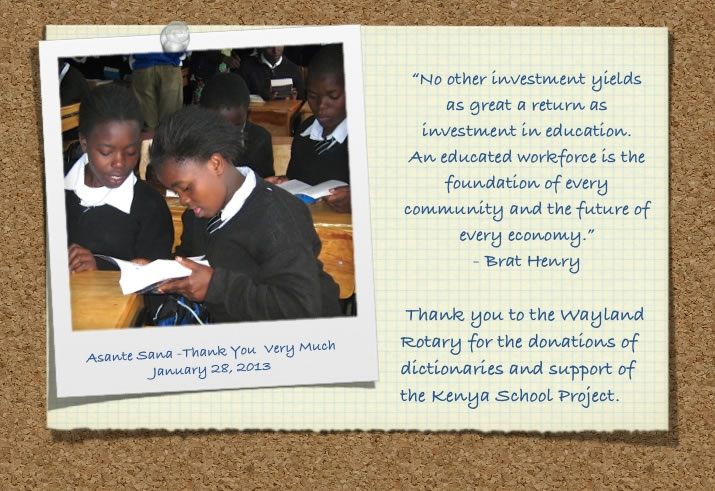 Asante Sana -Thank You Very Much
January 28, 2013
“No other investment yields
as great a return as
investment in education.
An educated workforce is the
foundation of every
community and the future of
every economy.”
- Brat Henry
Thank you to the Wayland
Rotary for the donations of
dictionaries and support of
the Kenya School Project.